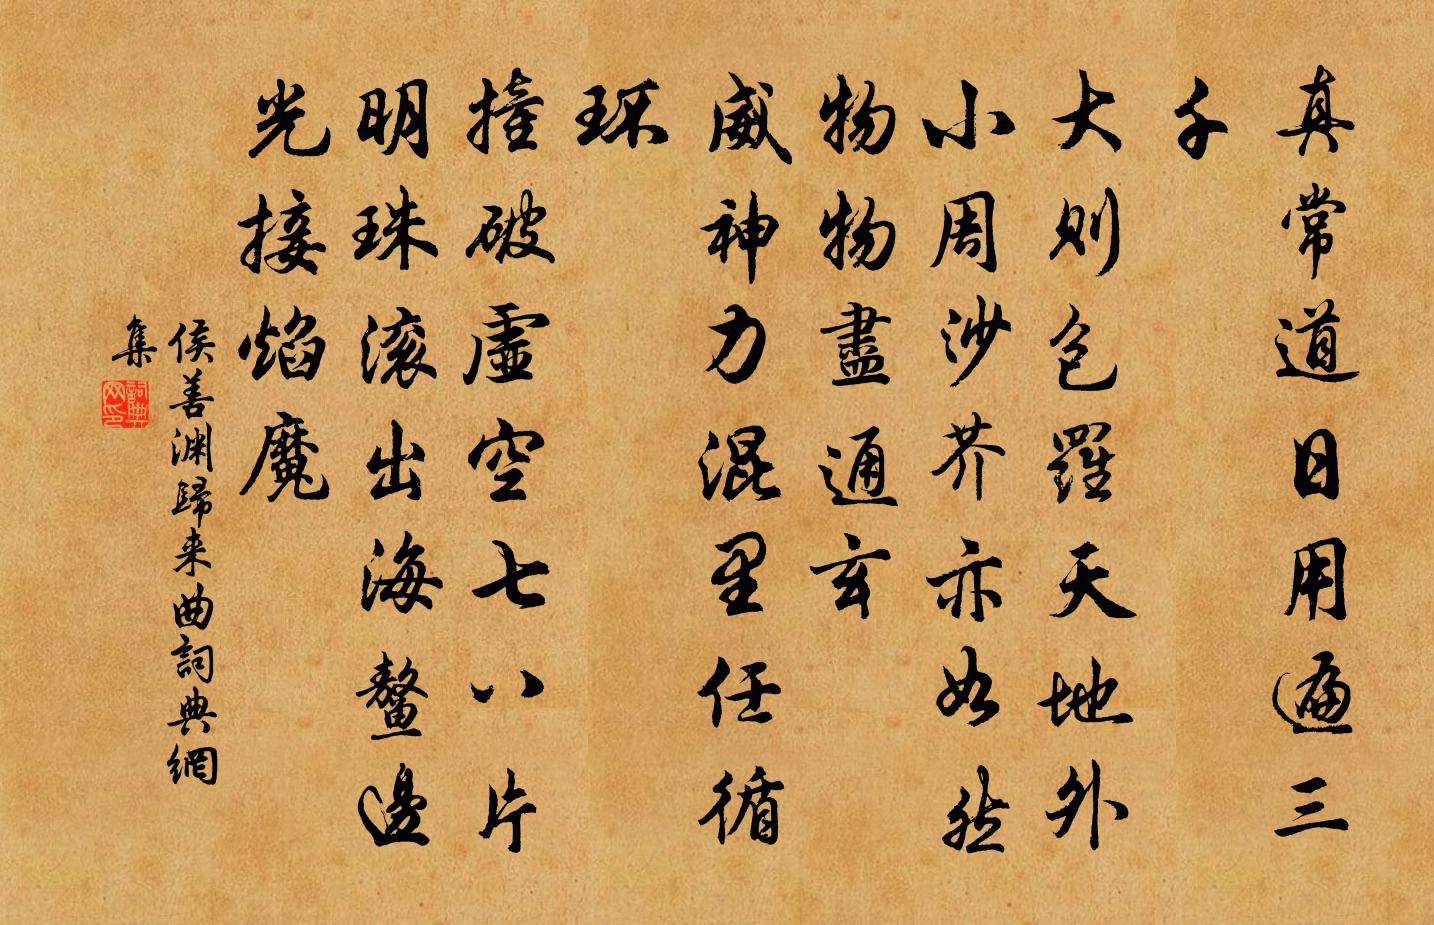 真常道日用遍三
千
大則包羅天地外
小周沙芥亦如然
物物盡通玄
威神力混里任循
環
撞破虛空七八片
明珠滾出海鰲邊
光接焰魔
侯善渊歸来曲詞典網
集
詞典网印